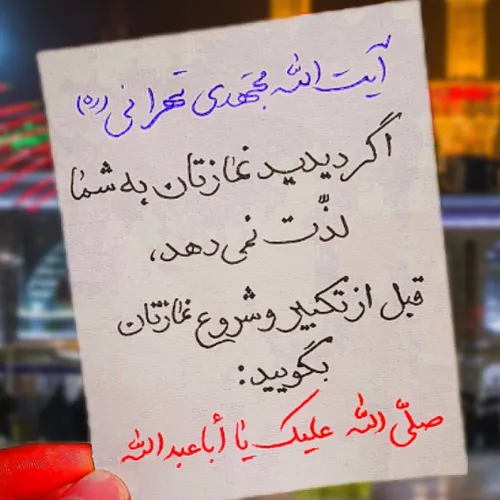 آیت الله مجتهدی تهرانی (ره)
اگر دیدید نمازتان به شما
لذّت نمی دهد،
قبل از تکبیر و شروع نمازتان
بگویید:
صلّی الله علیک یا أبا عبدالله